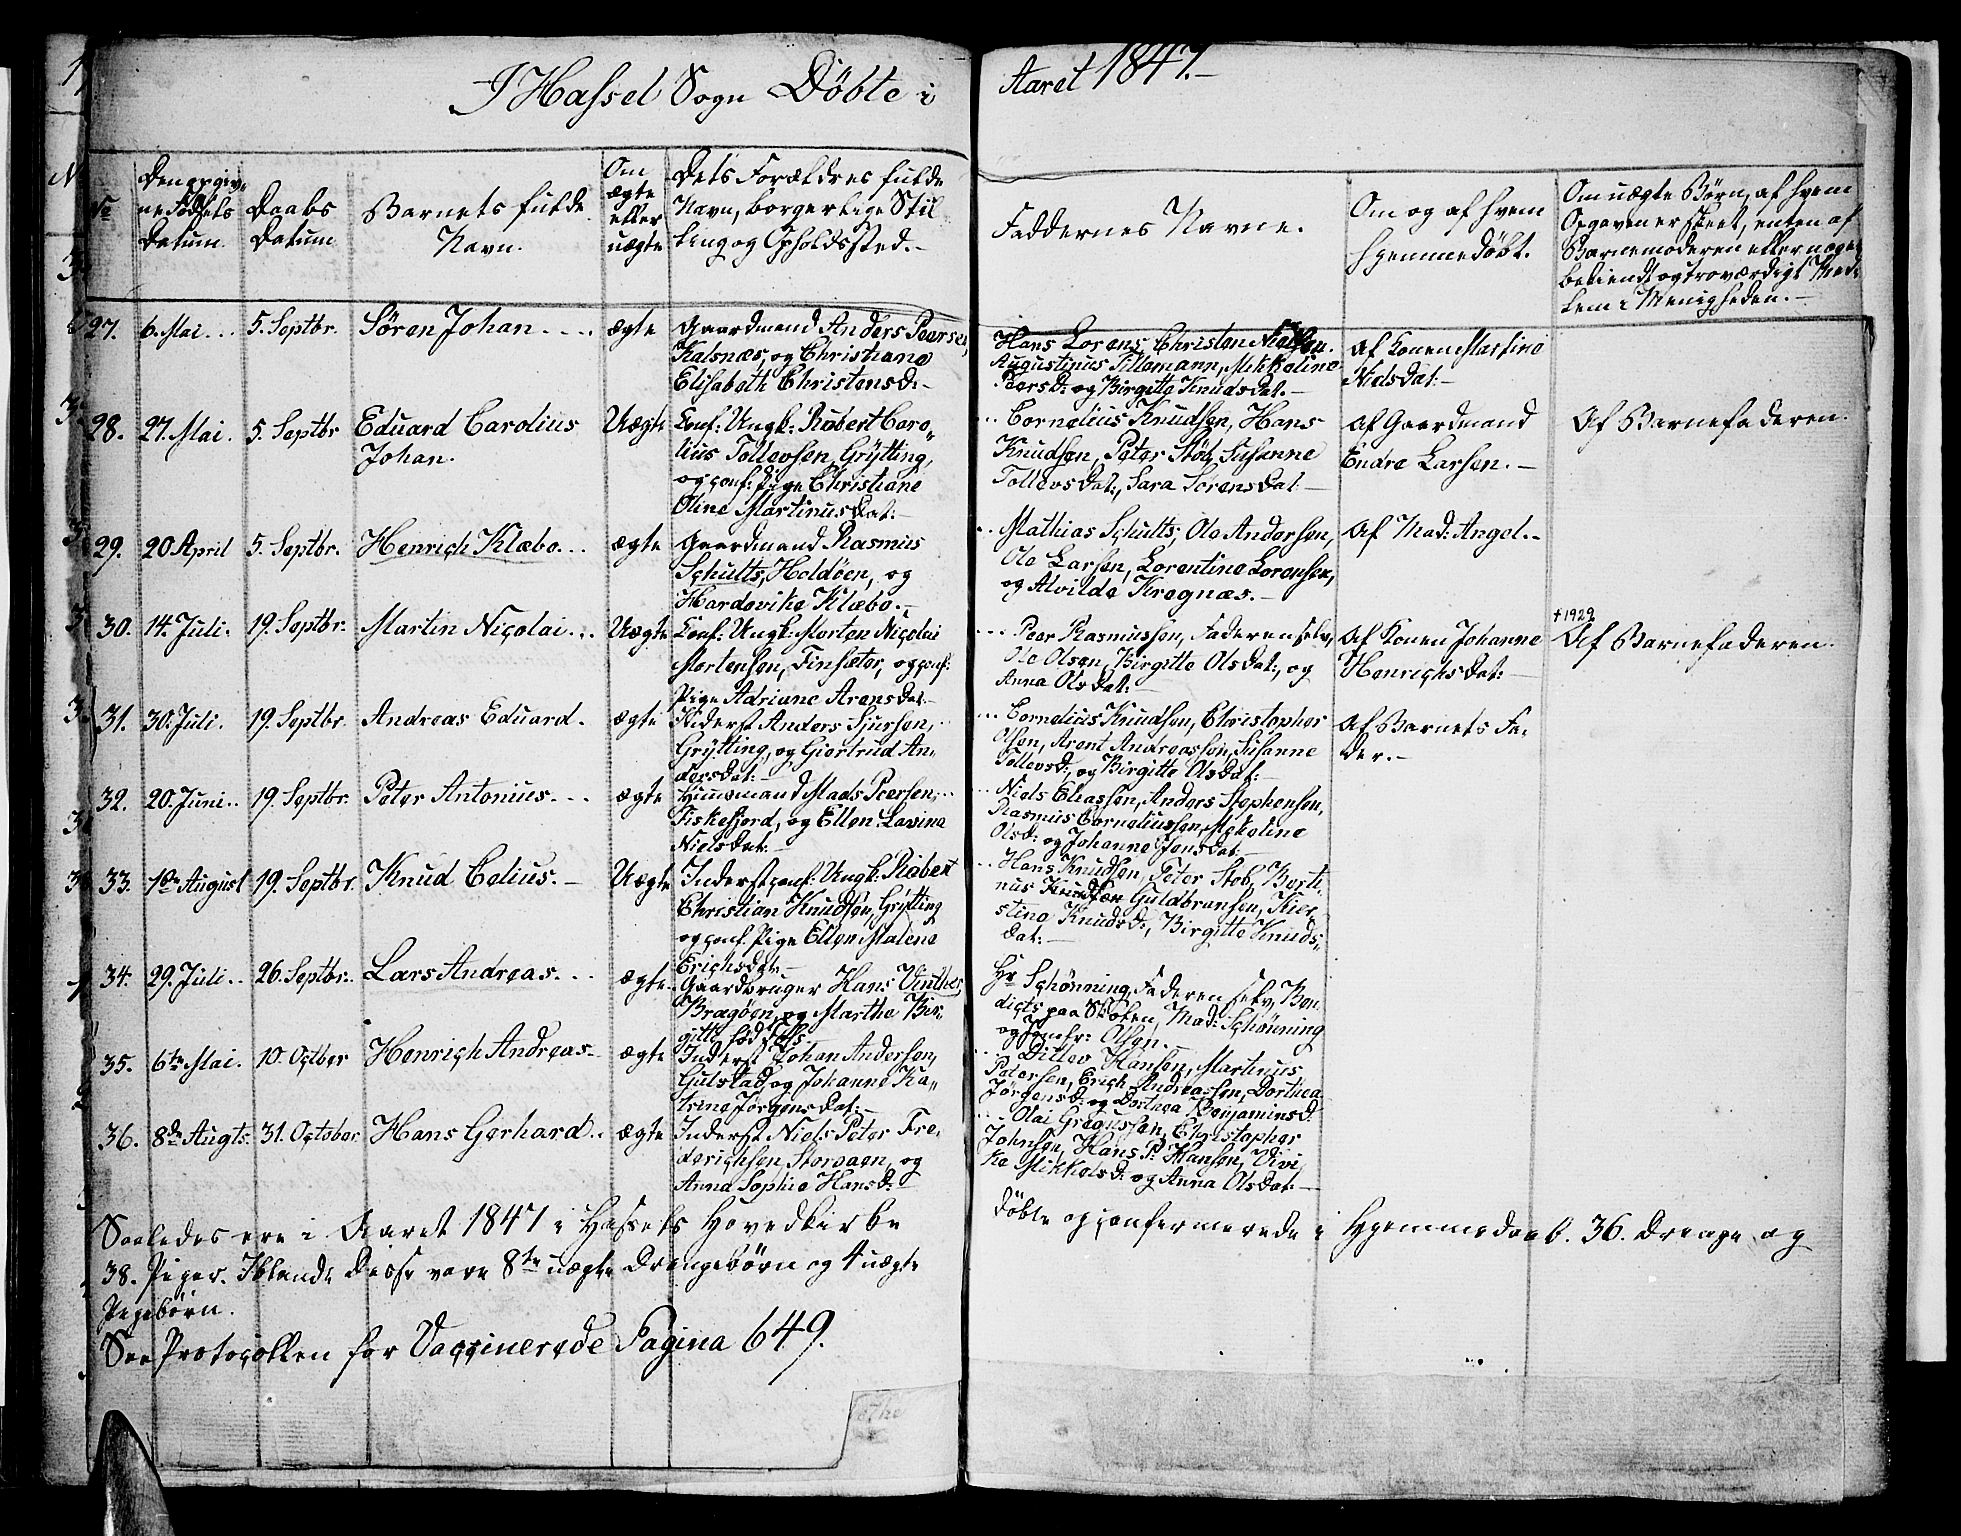 I Hassel Sogn Döbte i
Aaret 1847.-
No
Den opgiv-
ne Födsels
Datum.
Daabs
Datum
Barnets fulde
Navn.
Om
ægte
eller
uægte
Dets Forældres fulde
Navn, borgerlige Stil-
ling og Opholdssted.-
Faddernes Navne.
Om og af hvem
hjemmedöbt.
Om uægte Börn, af hvem
Opgaven er skeet, enten af
Barnemoderen eller noget
bekiendt og troværdigt Med-
lem i Menigheden.-
27. 6. Mai... 5. Septbr. Sören Johan.... ægte
Gaardmand Anders Peersen,
Kalsnæs, og Christiane
Elisabeth Christensd:-
Hans Lorens, Christen Nielsen.
Augustinus Tillemann, Mikkeline
Peersd: og Birgitte Knudsdat.-
Af Konen Martine
Nielsdat:-
28. 27. Mai. 5. Septbr Eduard Carolius
Johan.
Uægte
Conf: Ungk: Robert Caro-
lius Tollevsen, Grÿtting,
og conf: Pige Christiane
Oline Martinusdat:-
Cornelius Knudsen, Hans
Knudsen, Peter Stöb, Susanne
Tollevsdat:, Sara Sörensdat.-
Af Gaardmand
Endre Larsen.-
Af Barnefaderen.
29. 20 April 5. Septbr. Henrich Klæbo... ægte
Gaardmand Rasmus
Schults, Holdöen, og
Hardevike Klæbo.-
Mathias Schults, Ole Andersen,
Ole Larsen, Lorentine Lorensen,
og Alvilde Kregnæs.-
Af Mad: Angel.-
30. 14. Juli. 19. Septbr. Martin Nicolai... Uægte
Conf: Ungk: Morten Nicolai
Mortensen, Finsæter, og conf:
Pige Adriane Arensdat.-
Peer Rasmussen, Faderen selv,
Ole Olsen, Birgitte Olsdat:, og
Anna Olsdat:-
Af Konen Johanne
Henrichsdat:-
†1929
Af Barnefaderen.
31. 30. Juli. 19. Septbr. Andreas Eduard. ægte
Inderst Anders Sjursen,
Grÿtting, og Giertrud An-
dersdat:-
Cornelius Knudsen, Christopher
Olsen, Arent Andreassen, Susanne
Tollevsd:, og Birgitte Olsdat:-
Af Barnets Fa-
der.-
32. 20. Juni.. 19. Septbr. Peter Antonius... ægte
Huusmand Mads Peersen,
Fiskefjord, og Ellen Lavina
Nielsdat:-
Niels Eliassen, Anders Stephensen,
Rasmus Corneliussen, Mekeline
Olsd: og Johanne Jensdat.
33. 10de August 19. Septbr. Knud Celius.- Uægte
Inderst, conf: Ungk: Robert
Christian Knudsen, Grÿtting
og conf. Pige Ellen Malene
Erichsdat:-
Hans Knudsen, Peter Stob, Berti-
nus Guldbransen, Kier-
stine Knudsd:, Birgitte Knuds-
dat:-
34. 29. Juli.. 26. Septbr.. Lars Andreas... ægte
Gaardbruger Hans Vinther
Bragöen, og Marthe Bir-
gitte föd
Hr Schönning, Faderen selv, Ben-
dicts paa Stoben, Mad: Schönning
og Jomfr: Olsen.-
35. 6te Mai. 10. Octber Henrich Andreas- ægte
Inderst Johan Andersen,
Gulstad, og Johanne Ka-
trine Jörgensdat:-
Ditlev Hansen, Martinus
Petersen, Erich Andreassen, Dorthea
Jörgensd: og Dorthea Benjaminsd:
36. 8de Augts. 31. October Hans Gerhard.. ægte
Inderst Niels Peter Fre-
derichsen, Storvaen, og
Anna Sophie Hansd:-
Olai Gregussen, Christopher
Johnsen, Hans P: Hansen, Vivi-
ke Mikkelsd: og Anna Olsdat:-
Saaledes ere i Aaret 1847 i Hassels Hovedkirke
döbte og confermerede i Hjemmedaab. 36. Drenge og
38. Piger. Iblandt disse vare 8te uægte Drengebörn og 4 uægte
Pigebörn.
See Protocollen for Vaccinerede Pagina 649.